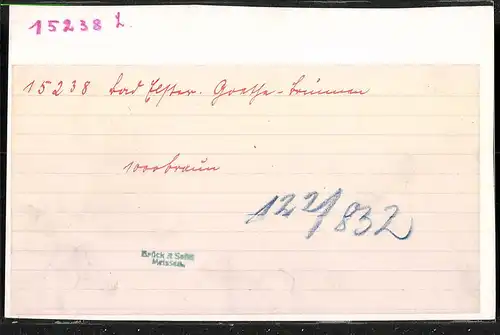 15238 L.
15238 Bad Elster. Goethe-Brunnen
1000 braun
122/832
Brück & Sohn
Meissen.